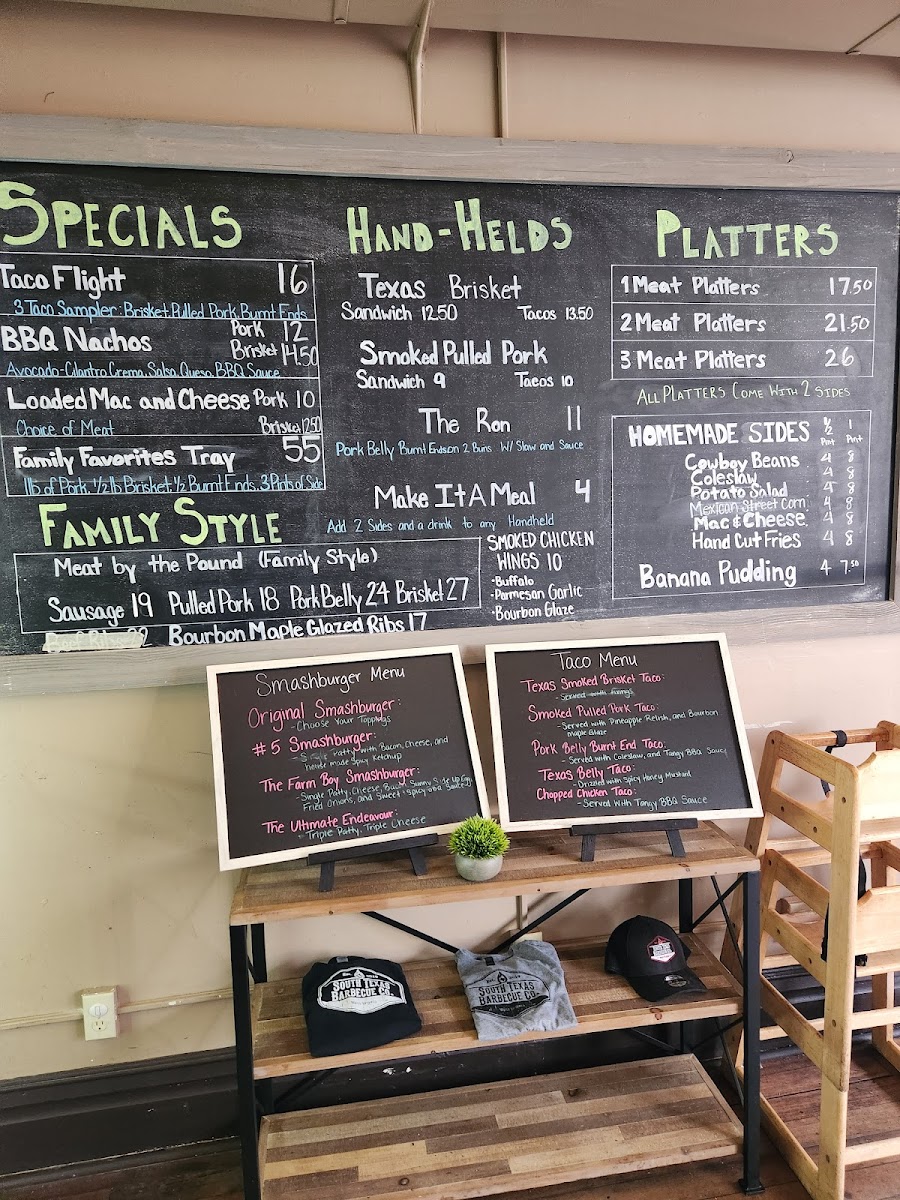 SPECIALS
Taco Flight 16
3 Taco Sampler: Brisket, Pulled Pork, Burnt Ends
BBQ Nachos Pork 12
Brisket 14.50
Avocado-Cilantro Crema, Salsa, Queso, BBQ Sauce
Loaded Mac and Cheese Pork 10
Choice of Meat Brisket 12.50
Family Favorites Tray 55
1lb of Pork, ½ lb Brisket, ½ Burnt Ends, 3 Pints of Side
FAMILY STYLE
Meat by the Pound (Family Style)
Sausage 19 Pulled Pork 18 Pork Belly 24 Brisket 27
Beef Ribs Bourbon Maple Glazed Ribs 17
HAND-HELDS
Texas Brisket
Sandwich 12.50 Tacos 13.50
Smoked Pulled Pork
Sandwich 9 Tacos 10
The Ron 11
Pork Belly Burnt Ends on 2 Buns W/ Slaw and Sauce
Make It A Meal 4
Add 2 Sides and a drink to any Handheld
SMOKED CHICKEN
WINGS 10
-Buffalo
-Parmesan Garlic
-Bourbon Glaze
PLATTERS
1 Meat Platters 17.50
2 Meat Platters 21.50
3 Meat Platters 26
ALL PLATTERS COME WITH 2 SIDES
HOMEMADE SIDES ½ Pint 1 Pint
Cowboy Beans 4 8
Coleslaw 4 8
Potato Salad 4 8
Mexican Street Corn 4 8
Mac & Cheese 4 8
Hand Cut Fries 4 8
Banana Pudding 4 7.50
Smashburger Menu
Original Smashburger:
-Choose Your Toppings
#5 Smashburger:
-Single Patty with Bacon, Cheese, and
house made Spicy Ketchup
The Farm Boy Smashburger:
-Single Patty, Cheese, Bacon, Sunny Side Up Egg,
Fried Onions, and Sweet + Spicy BBQ Sauce
The Ultimate Endeavour:
-Triple Patty, Triple Cheese
Taco Menu
Texas Smoked Brisket Taco:
-Served with fixings
Smoked Pulled Pork Taco:
-Served with Pineapple Relish, and Bourbon
Maple Glaze
Pork Belly Burnt End Taco:
-Served with Coleslaw, and Tangy BBQ Sauce
Texas Belly Taco:
-Drizzled with Spicy Honey Mustard
Chopped Chicken Taco:
-Served With Tangy BBQ Sauce
SOUTH TEXAS
BARBECUE CO.
SOUTH TEXAS
BARBECUE CO.